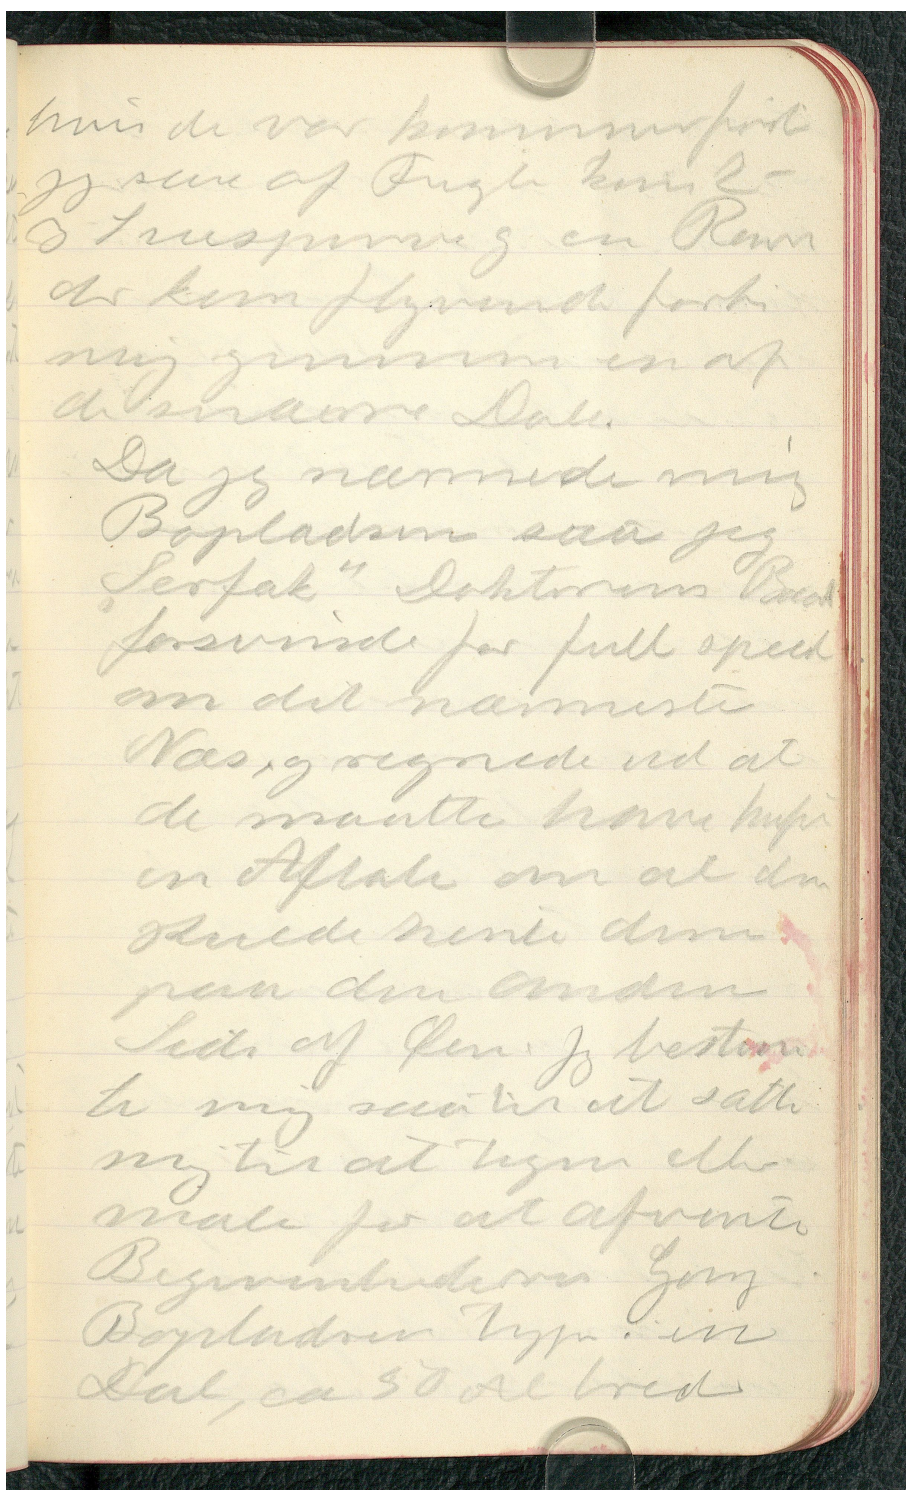 hvis de var kommen först
jeg saae af Fugle kun 2-
3 Snespurve og en Ravn
der kom flyvende forbi
mig gennem en af
de snævre Dale.
Da jeg nærmede mig
Bopladsen saa jeg
"Serfak" Doktorens Baad
forsvinde for full speed
om det nærmeste
Næs, og regnede ud at
de maatte have haft
en Aftale om at den
skulde hente dem
paa den anden
Side af Øen. Jeg bestem
te mig saa til at sætte
mig til at tegne eller
male for at afvente
Begivenhedernes Gang.
Bopladsen Type: en
Dal, ca 50 Al bred